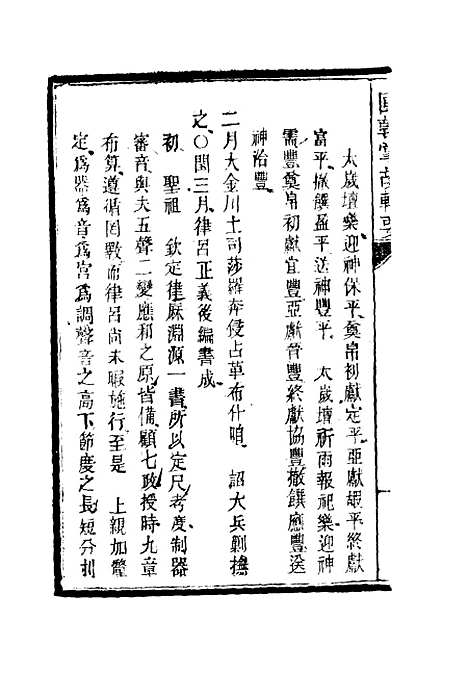 太歲壇樂迎神保平奠帛初獻定平亞獻嘏平終獻
富平撤饌盈平送神豐平　太歲壇祈雨報祀樂迎神
需豐奠帛初獻宜豐亞獻晉豐終獻協豐撤饌應豐送
神洽豐
二月大金川土司莎羅奔侵占革布什咱　詔大兵剿撫
之○閏三月律呂正義後編書成
初　聖祖　欽定律厤淵源一書所以定尺考度制器
審音與夫五聲二變應和之原皆備顧七政授時九章
布算遵循罔斁而律呂尚未暇施行至是　上親加釐
定爲器爲音爲宮爲調聲音之高下節度之長短分刌